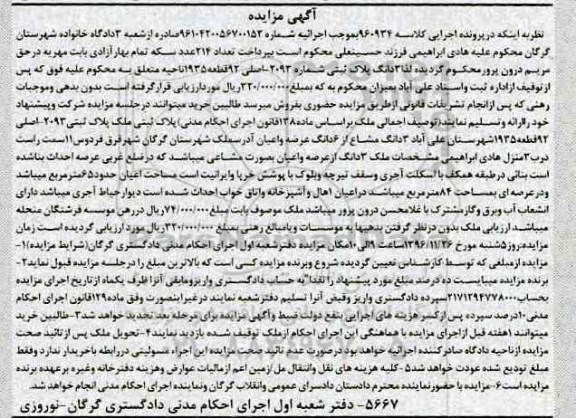 آگهی مزایده
نظر به اینکه در پرونده اجرایی کلاسه ۹۶۰۹۳۴ بموجب اجرائیه شماره ۹۶۱۰۴۲۰۰۵۶۷۰۰۱۵۲ صادره از شعبه ۳ دادگاه خانواده شهرستان
گرگان محکوم علیه هادی ابراهیمی فرزند حسینعلی محکوم است بپرداخت تعداد ۲۱۴ عدد سکه تمام بهار آزادی بابت مهریه در حق
مریم درون پرور محکوم گردیده لذا ۳ دانگ پلاک ثبتی شماره ۲۰۹۳-اصلی ۹۲ قطعه ۱۹۳۵ ناحیه متعلق به محکوم علیه فوق که پس
از توقیف از اداره ثبت واسناد علی آباد بمیزان محکوم به که بمبلغ ۳۲۰/۰۰۰/۰۰۰ ریال مورد ارزیابی قرار گرفته است بدون بدهی وموجبات
رهنی که پس از انجام تشریفات قانونی از طریق مزایده حضوری بفروش میرسد طالبین خرید میتوانند در جلسه مزایده شرکت وپیشنهاد
خود را ارائه و تسلیم نمایند(توصیف اجمالی ملک بر اساس ماده ۱۳۸ قانون اجرای احکام مدنی) پلاک ثبتی ملک پلاک ثبتی ۲۰۹۳-اصلی
۹۲ قطعه ۱۹۳۵ شهرستان علی آباد ۳ دانگ مشاع از ۶ دانگ عرصه واعیان آدرس ملک شهرستان گرگان شهر فرق فردوس ۱۱ سمت راست
درب ۳ منزل هادی ابراهیمی مشخصات ملک ۳ دانگ از عرصه واعیان بصورت مشاعی میباشد که در ضلع غربی عرصه احداث بناشده
است بنائی در طبقه همکف با اسکلت آجری وسقف تیرچه وبلوک با پوشش خرپا وایرانیت است مساحت اعیان حدود ۶۵ مترمربع میباشد
ودر عرصه ای بمساحت ۸۴ مترمربع میباشد در اعیان اهال و آشپزخانه واتاق خواب احداث شده است دیوار حیاط آجری میباشد دارای
انشعاب آب وبرق وگاز مشترک با غلامحسن درون پرور میباشد ملک موصوف بابت مبلغ ۷۴/۰۰۰/۰۰۰ ریال در رهن موسسه فرشتگان منحله
میباشد ارزیابی ملک بدون در نظر گرفتن بدهیها به موسسات ویا مبالغ رهنی بمبلغ ۳۲۰/۰۰۰/۰۰۰ ریال مورد ارزیابی گردیده است زمان
مزایده روز ۵شنبه مورخ ۱۳۹۶/۱۱/۲۶ ساعت ۹الی ۱۰مکان مزایده دفتر شعبه اول اجرای احکام مدنی دادگستری گرگان(شرایط مزایده)۱-
مزایده از مبلغی که توسط کارشناس تعیین گردیده شروع وبرنده مزایده کسی است که بالاترین مبلغ را در جلسه مزایده قبول نماید۲-
برنده مزایده میبایست ده درصد مبلغ مورد پیشنهاد را نقدا به حساب دادگستری واریز ومابقی آنرا ظرف یکماه از تاریخ اجرای مزایده
بحساب ۲۱۷۱۲۹۴۷۷۸۰۰۰ سپرده دادگستری واریز وقبض آنرا تسلیم دفتر شعبه نمایند در غیر اینصورت وفق ماده ۱۲۹ قانون اجرای احکام
مدنی ۱۰درصد سپرده پس از کسر هزینه های اجرایی بنفع دولت ضبط و آگهی مزایده برای مرحله بعد تجدید خواهد شد ۳-طالبین خرید
میتوانند ۱هفته قبل از اجرای مزایده با هماهنگی این اجرای احکام از ملک توقیف شده بازدید نمایند۴-تحویل ملک پس از تائید صحت
مزایده از ناحیه دادگاه صادر کننده اجرائیه خواهد بود در صورت عدم تائید صحت مزایده این اجراء مسوئیتی در رابطه با خریدار ندارد وفقط
مبلغ تودیع شده عودت خواهد شد۵-کلیه هزینه های نقل وانتقال مل زمین اعم از مالیات عوارض وهزینه دفترخانه وغیره بر عهده برنده
مزایده است ۶-مزایده با حضور نماینده محترم دادستان دادسرای عمومی وانقلاب گرگان ونماینده اجرای احکام مدنی انجام خواهد شد.
۵۶۶۷- دفتر شعبه اول اجرای احکام مدنی دادگستری گرگان-نوروزی